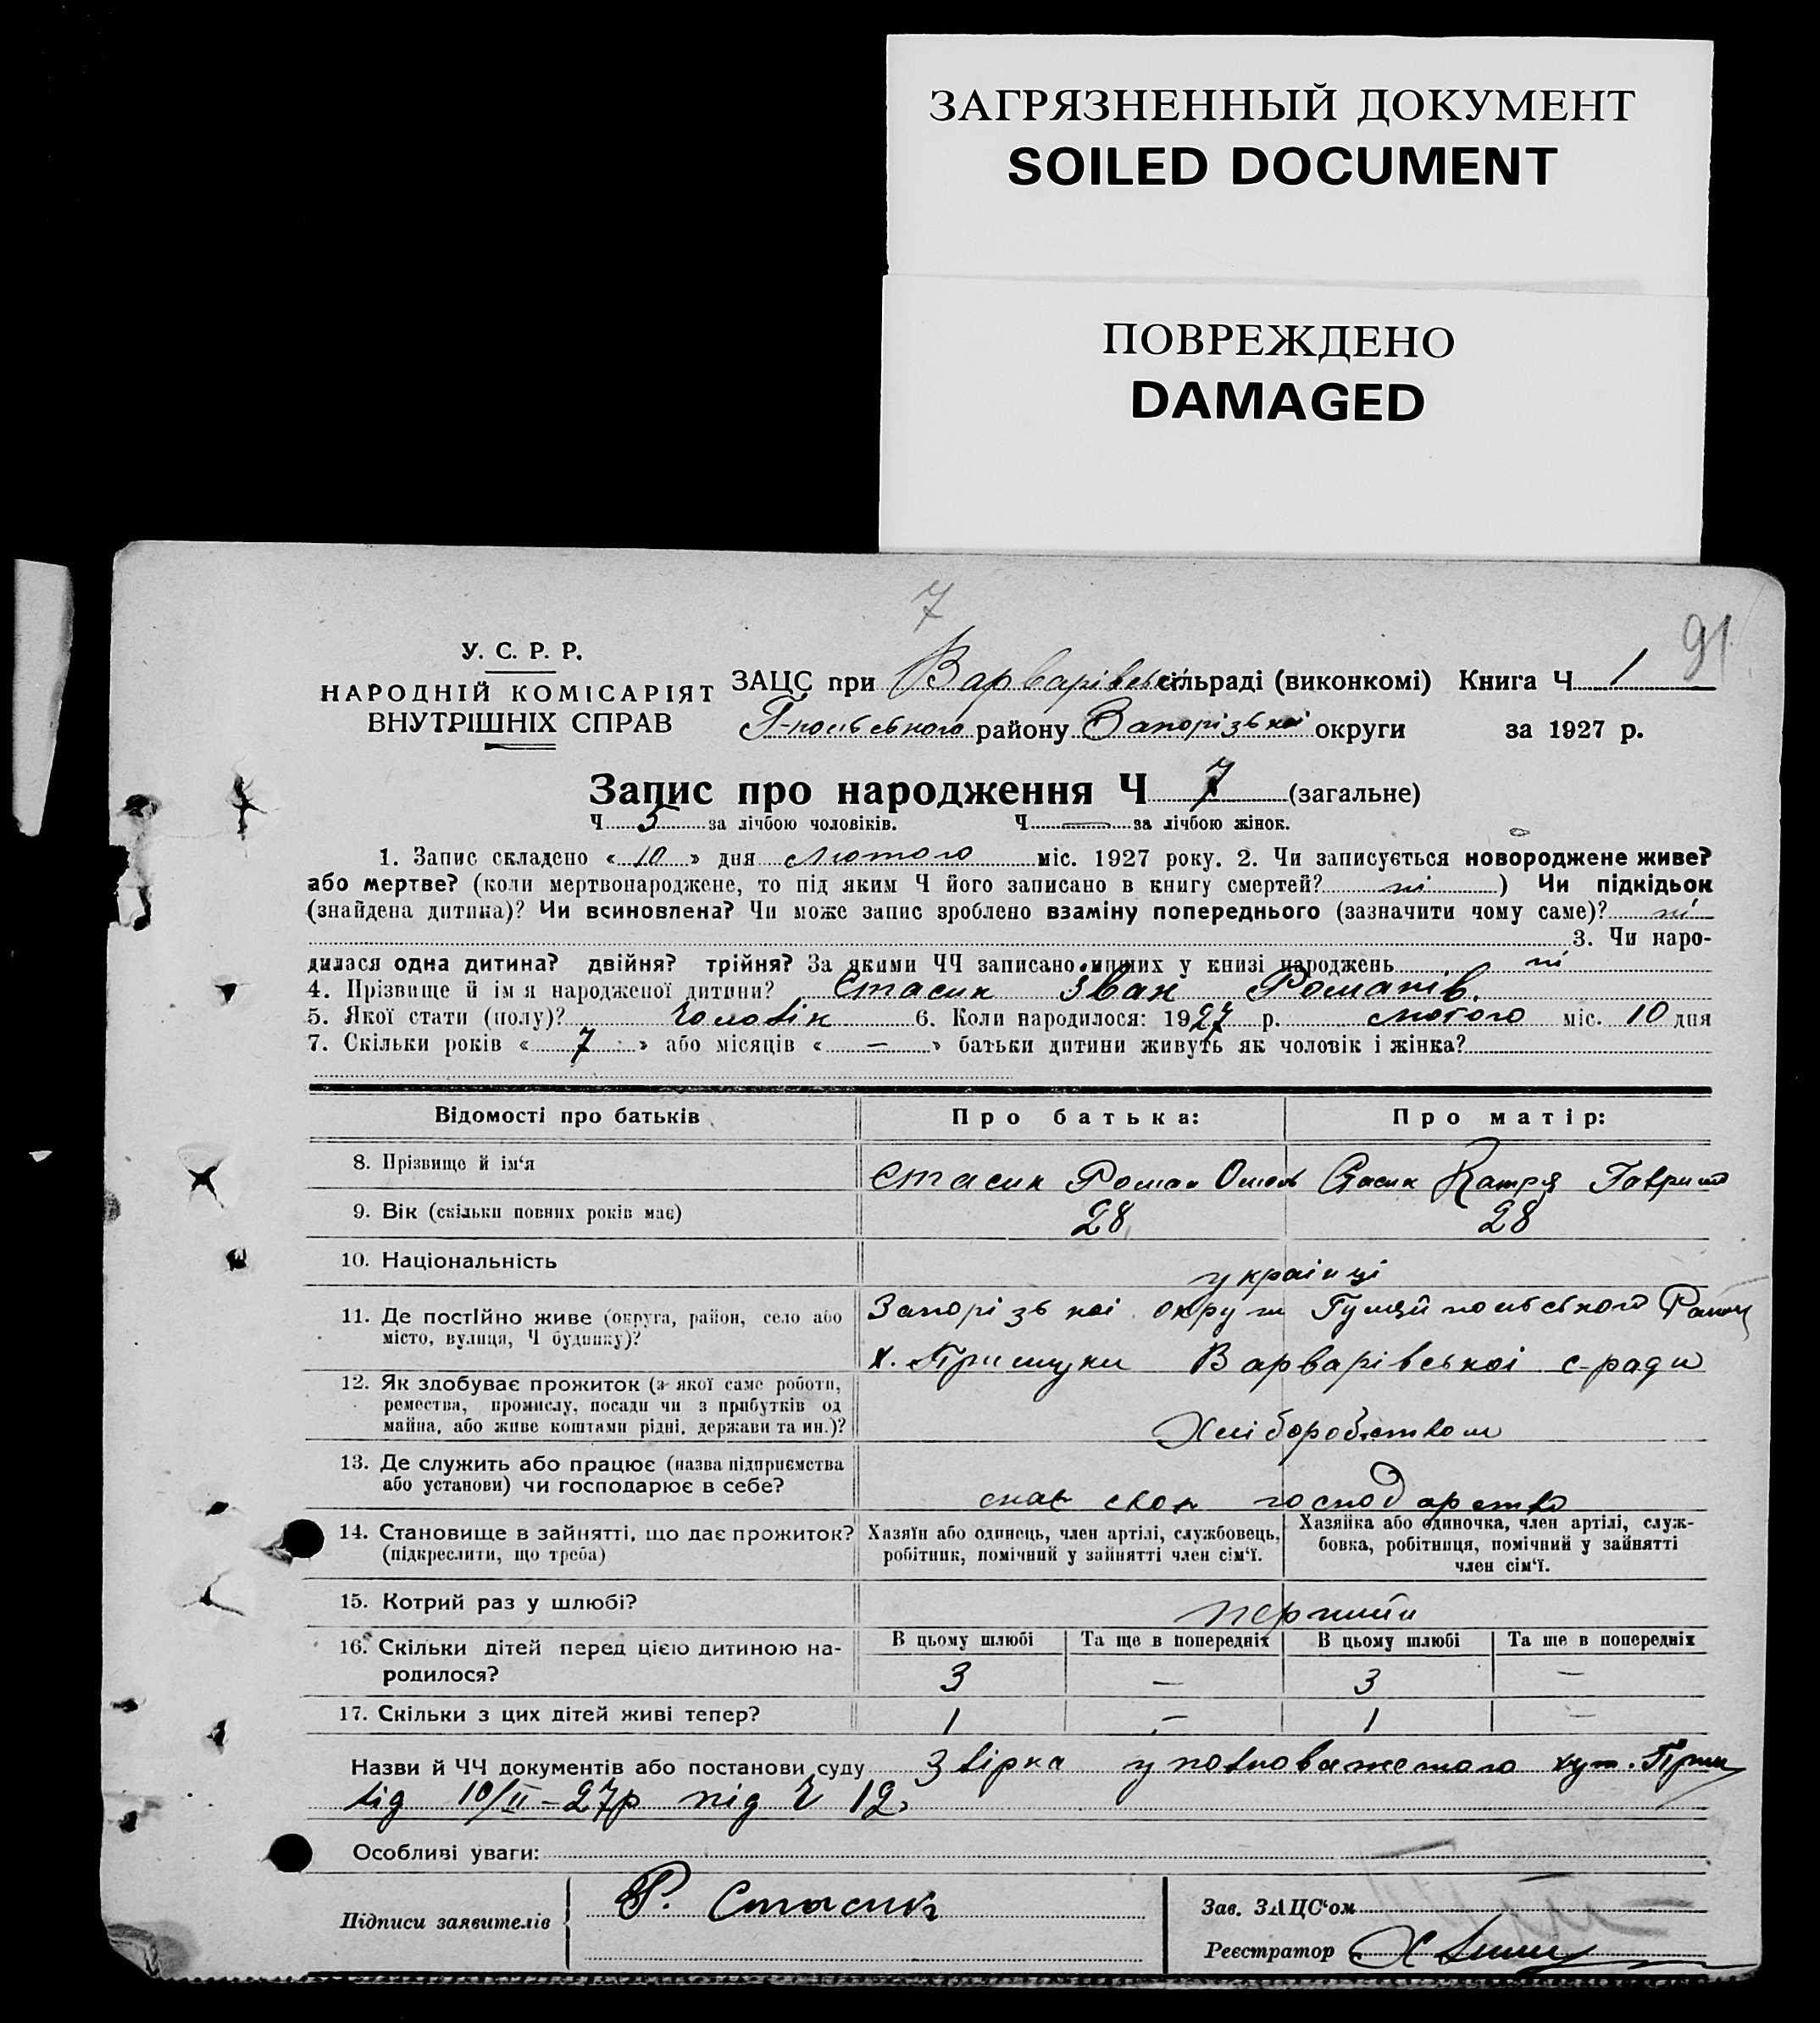 ЗАГРЯЗНЕННЫЙ ДОКУМЕНТ
SOILED DOCUMENT
ПОВРЕЖДЕНО
DAMAGED
7
91
У. С. Р. Р.
НАРОДНІЙ КОМІСАРІЯТ
ВНУТРІШНІХ СПРАВ
ЗАЦС при Варварівській сільраді (виконкомі) Книга Ч 1
Г-польського району Запорізькоі округи за 1927 р.
Запис про народження Ч 7 (загальне)
Ч 5 за лічбою чоловіків. Ч — за лічбою жінок.
1. Запис складено « 10 » дня Лютого міс. 1927 року. 2. Чи записується новороджене живе?
або мертве? (коли мертвонароджене, то під яким Ч його записано в книгу смертей? ні ) Чи підкідьок
(знайдена дитина)? Чи всиновлена? Чи може запис зроблено взаміну попереднього (зазначити чому саме)? ні
3. Чи наро-
дилася одна дитина? двійня? трійня? За якими ЧЧ записано инших у книзі народжень ні
4. Прізвище й ім я народженої дитини? Стасик Іван Романів.
5. Якої стати (полу)? Чоловік 6. Коли народилося: 1927 р. лютого міс. 10 дня
7. Скільки років « 7 » або місяців « — » батьки дитини живуть як чоловік і жінка?
Відомості про батьків Про батька: Про матір:
8. Прізвище й ім‘я Стасик Роман Стасик Катря
9. Вік (скільки повних років має) 28 28
10. Національність українці
11. Де постійно живе (округа, район, село або Запорізькоі округи Гуляйпольського Району
місто, вулиця, Ч будинку)? х. Прищуки Варварівськоі с-ради
12. Як здобуває прожиток (з якої саме роботи,
ремества, промислу, посади чи з прибутків од
майна, або живе коштами рідні, держави та ин.)? Хліборобством
13. Де служить або працює (назва підприємства
або установи) чи господарює в себе? має своє господарство
14. Становище в зайнятті, що дає прожиток? Хазяїн або одинець, член артілі, службовець, Хазяйка або одиночка, член артілі, служ-
(підкреслити, що треба) робітник, помічний у зайнятті член сім‘ї. бовка, робітниця, помічний у зайнятті
член сім‘ї.
15. Котрий раз у шлюбі? перший
16. Скільки дітей перед цією дитиною на- В цьому шлюбі Та ще в попередніх В цьому шлюбі Та ще в попередніх
родилося? 3 — 3 —
17. Скільки з цих дітей живі тепер? 1 — 1 —
Назви й ЧЧ документів або постанови суду Звірка уповноваженого хут.
від 10/II-27р під Ч 12
Особливі уваги:
Підписи заявителів Р. Стасик
Зав. ЗАЦС‘ом
Реєстратор